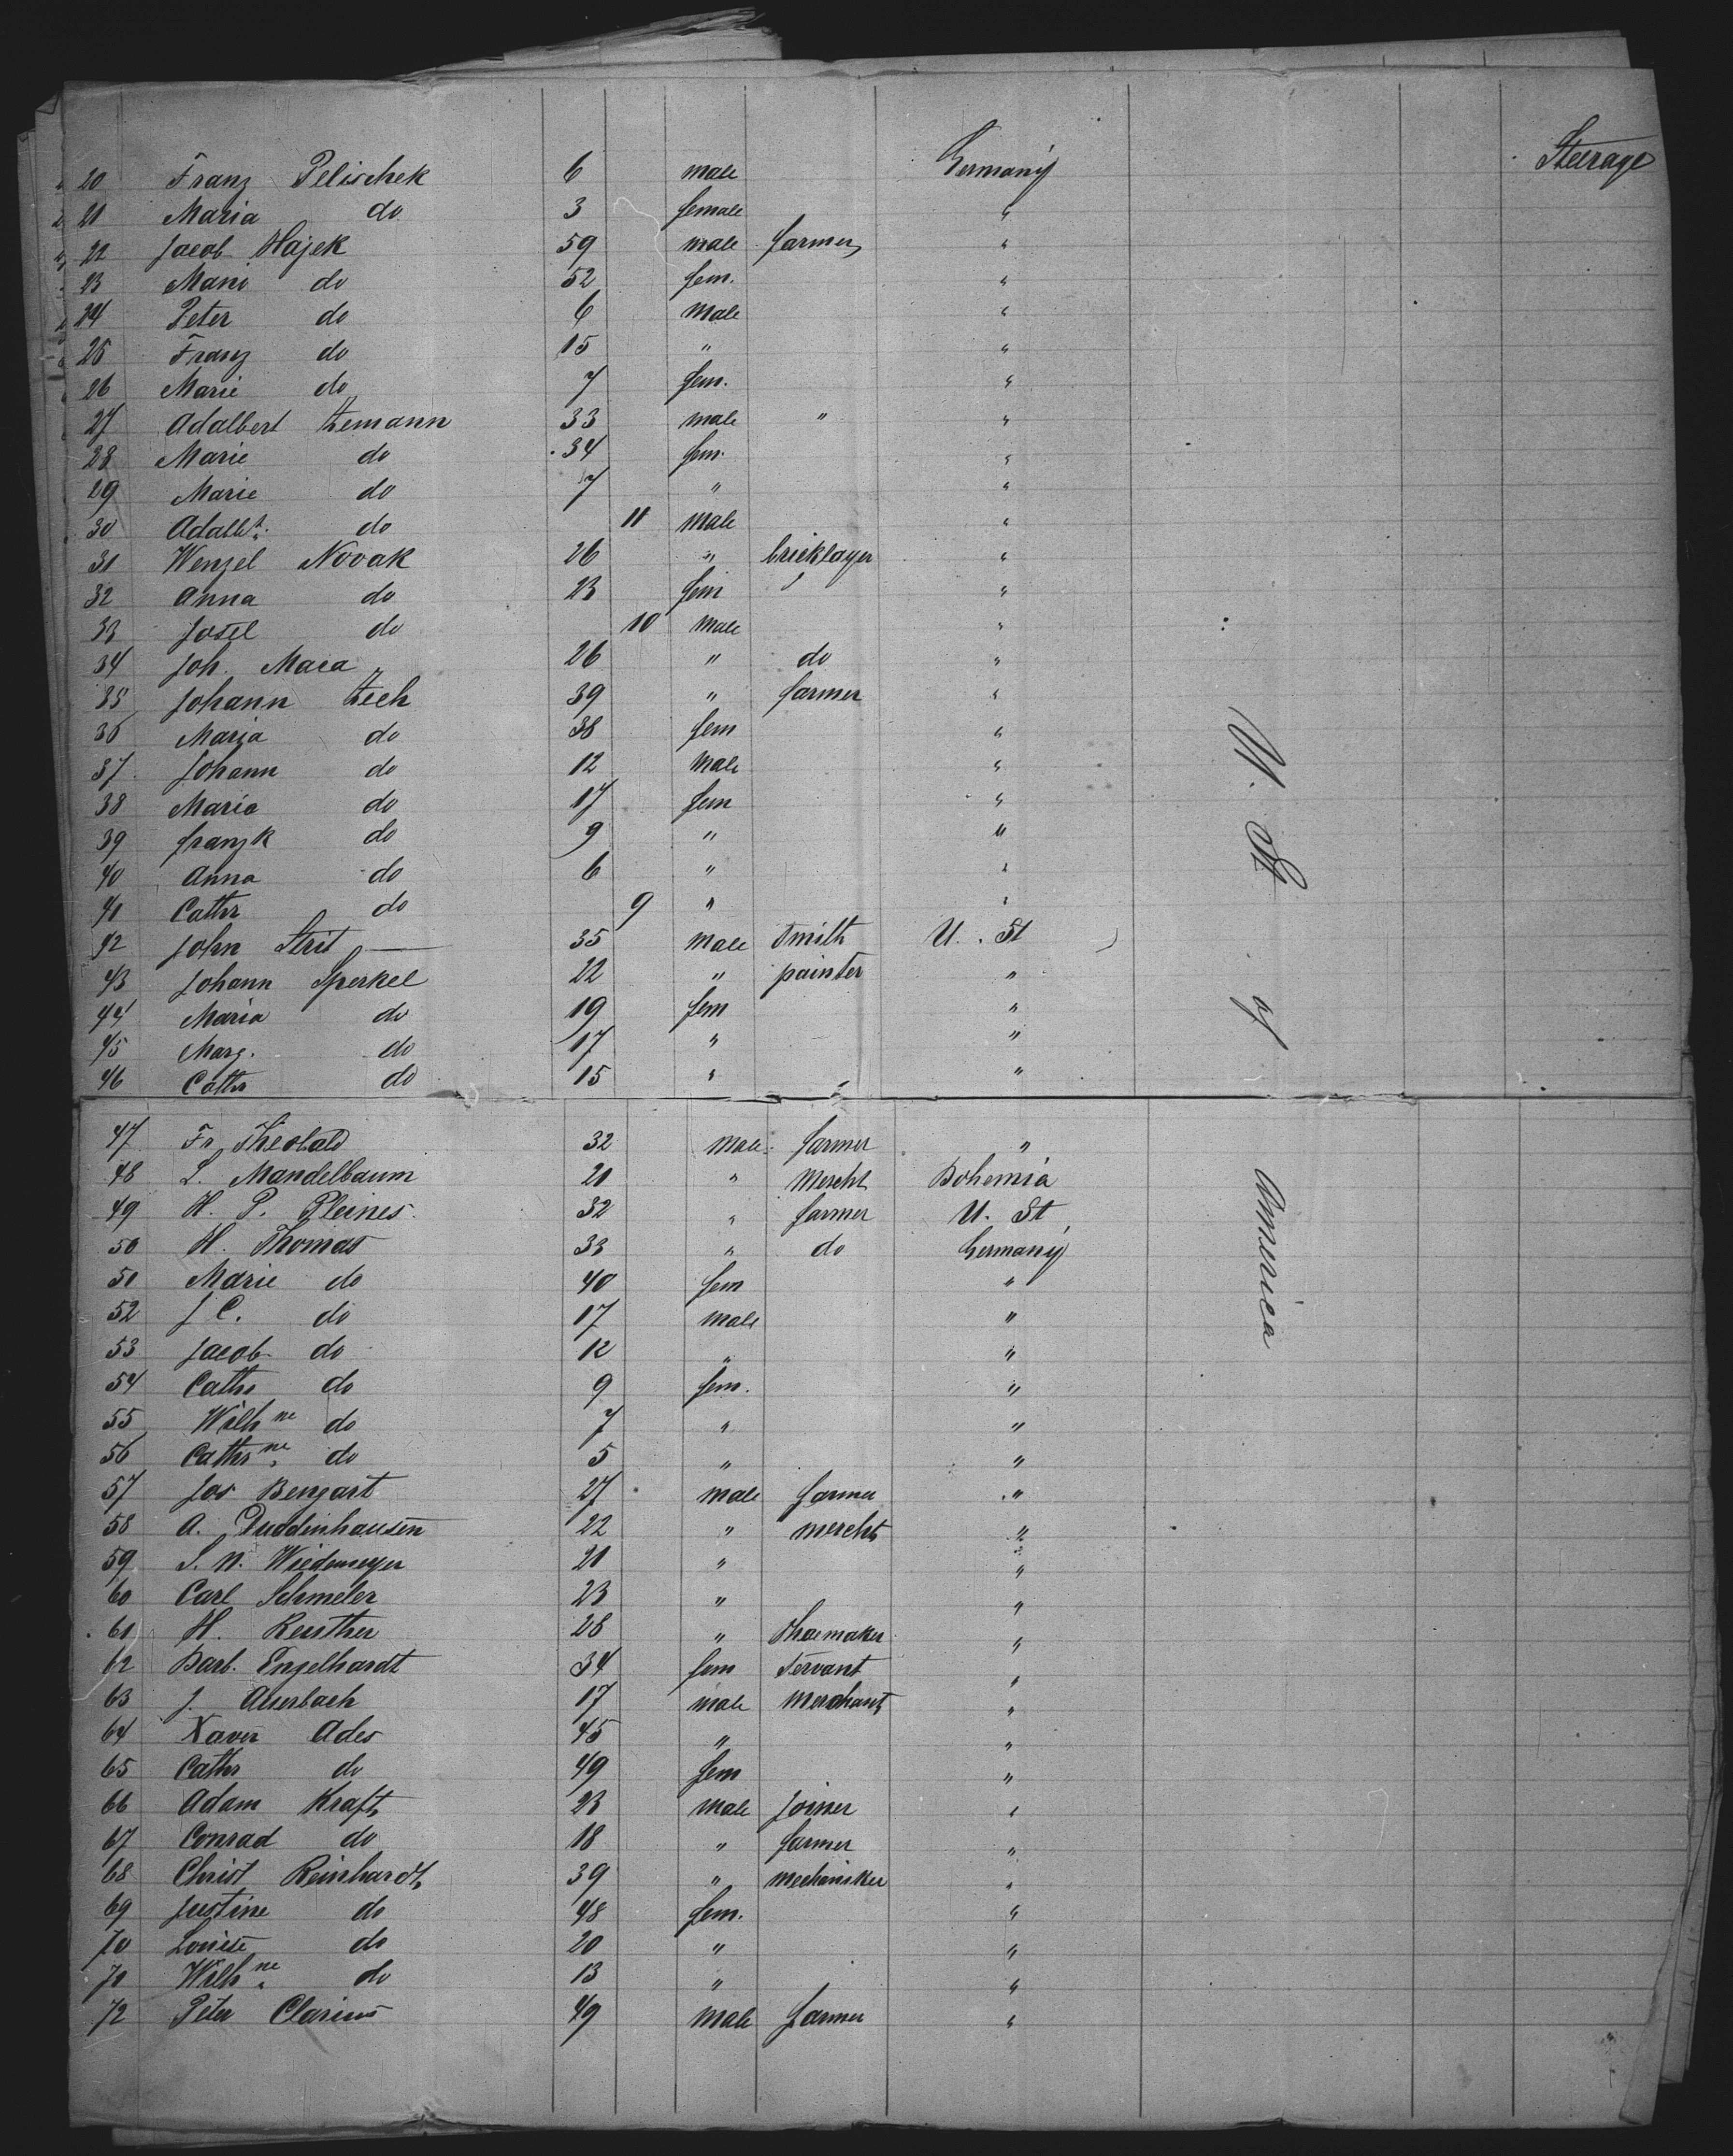 20 Franz Pelischek 6 male Germany Steerage
21 Maria do 3 female "
22 Jacob Hajek 59 male farmer "
23 Marie do 52 fem. "
24 Peter do 6 male "
25 Franz do 15 " "
26 Marie do 7 fem. "
27 Adalbert Zemann 33 male " "
28 Marie do 34 fem. "
29 Marie do 7 " "
30 Adalbt. do 11 male "
31 Wenzel Novak 26 " bricklayer "
32 Anna do 23 fem "
33 Josef do 10 male "
34 Joh. Mara 26 " do "
35 Johann Zech 39 " farmer "
36 Maria do 38 fem "
37 Johann do 12 male "
38 Maria do 17 fem "
39 Franzk do 9 " "
40 Anna do 6 " "
41 Cathr do 9 " "
42 John Strit 35 male Smith U. St
43 Johann Sperkel 22 " painter "
44 Maria do 19 fem "
45 Marg. do 17 " "
46 Cathr do 15 " "
U. St. of America
47 Fr Theobald 32 male farmer "
48 L. Mandelbaum 21 " Mercht Bohemia
49 H. P. Pleines 32 " farmer U. St
50 H. Thomas 33 " do Germany
51 Marie do 40 fem "
52 J C. do 17 male "
53 Jacob do 12 " "
54 Cathr do 9 fem. "
55 Wilhne do 7 " "
56 Cathrne do 5 " "
57 Jos Bengart 27 male farmer "
58 A. Duddenhausen 22 " mercht "
59 S. N. Wiedemeyer 21 " "
60 Carl Schmeler 23 " "
61 H. Reuther 28 " Shoemaker "
62 Barb. Engelhardt 34 fem Servant "
63 J. Auerbach 17 male merchant "
64 Xaver Ades 45 " "
65 Cathr do 49 fem "
66 Adam Kraft 23 male joiner "
67 Conrad do 18 " farmer "
68 Christ Reinhardt 39 " mechaniker "
69 Justine do 48 fem. "
70 Louise do 20 " "
71 Wilhne do 13 " "
72 Peter Clarius 49 male farmer "